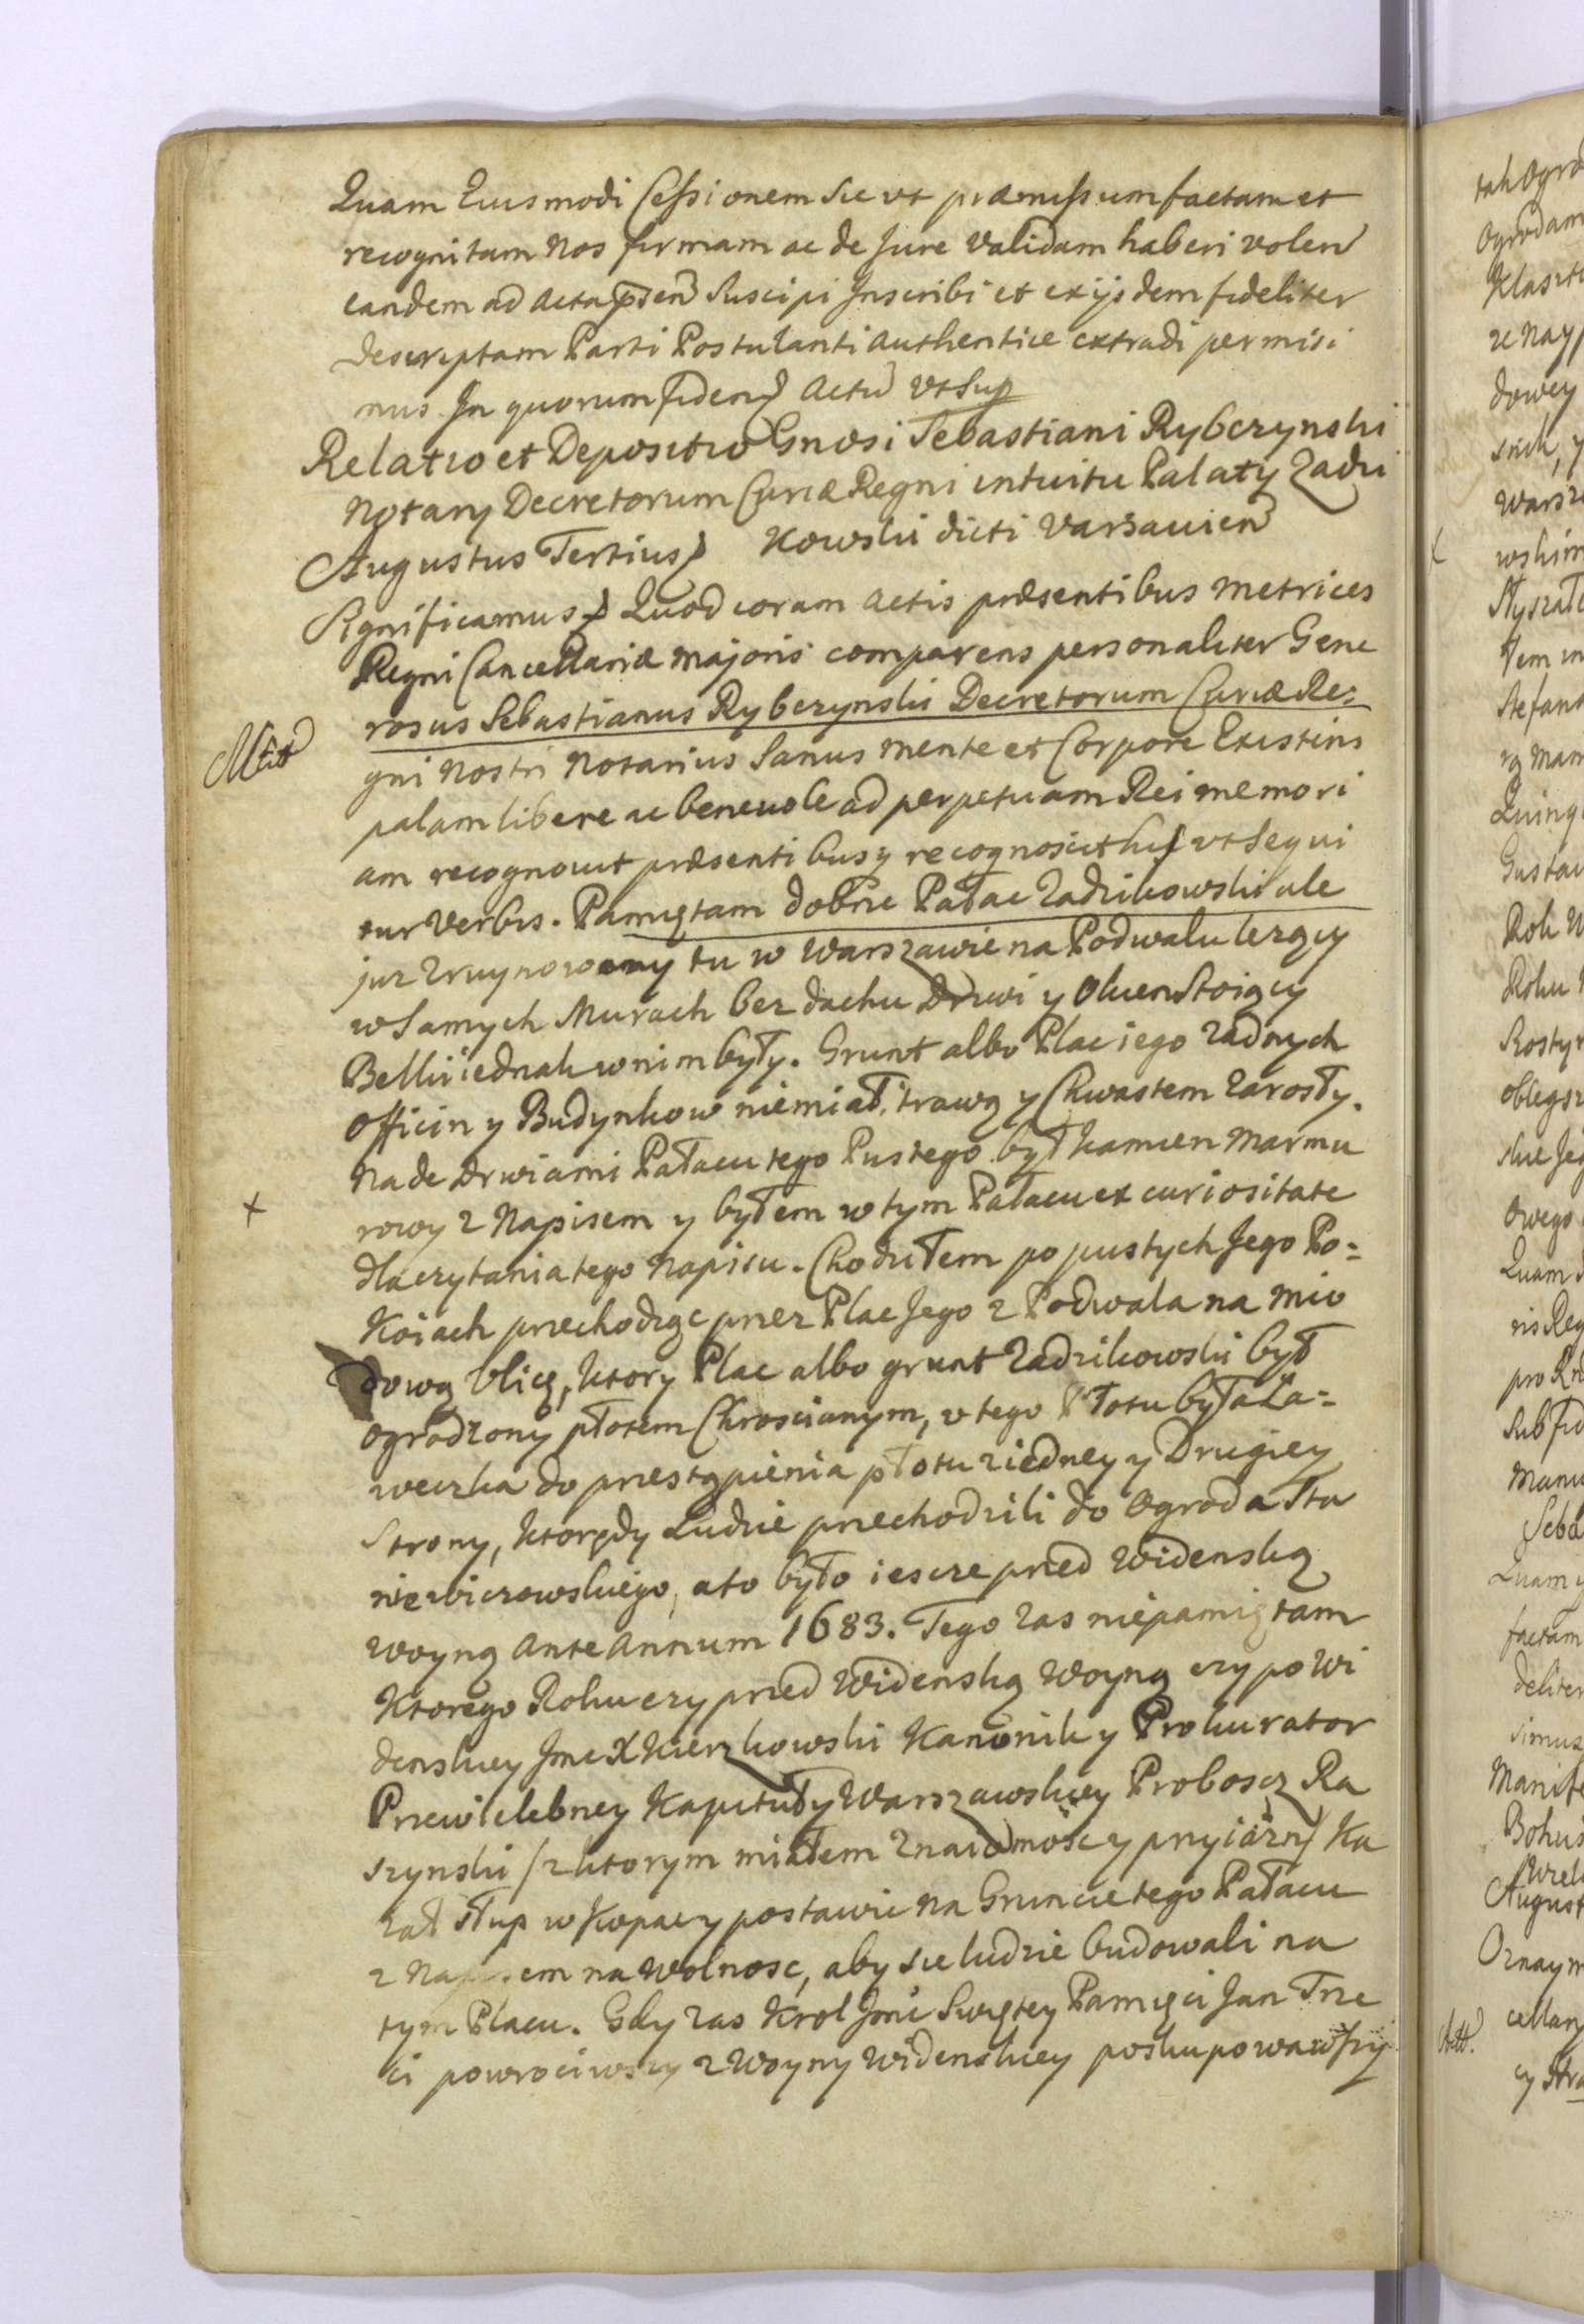 Quam Eiusmodi Cessionem Sic vt præmissum factam et
recognitam Nos firmam ac de Jure Validam haberi volen
eandem ad Acta psen Suscipi Inscribi et exijsdem fideliter
Descriptam Parti Postulanti Authentice extradi permisi
mus. In quorum fidem Actu vt Sup
Relatio et Depositio Gnosi Sebastiani Rybczynski
Notary Decretorum Curiæ Regni intuitu Palaty Zadzi
Augustus Tertius Kowski dicti Varsavien
Significamus Quod coram Actis præsentibus Metrices
Regni Cancellariæ Majoris comparens personaliter Gene
rosus Sebastianus Rybczynski Decretorum Curiæ Re=
gni Nostri Notarius Sanus mente et Corpore Existens
palam libere ac benevole ad perpetuam Rei memori
am recognovit præsentibusq recognoscit his vt Sequi
tur Verbis. Pamiętam dobrze Pałac Zadzikowski ale
juz Zruynowany tu w Warszawie na Podwalu lezący
w Samych Murach bez dachu Drzwi y Okien Stoiący
Belki iednak w nim były. Grunt albo Plac iego zadnych
Officin y Budynkow niemiał, trawą y Chwastem Zarosły.
Nade Drzwiami Pałacu tego Pustego był kamien Marmu
x rowy z Napisem y byłem w tym Pałacu ex curiositate
dla czytania tego Napisu. Chodziłem po pustych Jego Po=
Koiach przechodząc przez Plac Jego z Podwala na Mio
dową Ulicę, ktory Plac albo grunt Zadzikowski był
Ogrodzony płotem Chroscianym, v tego Płotu była Ła=
weczka do przestąpienia płotu z iedney y Drugiey
Strony, ktorędy Ludzie przechodzili do Ogroda Sta
niewiczowskiego, a to było iescze przed Widenską
Woyną Ante Annum 1683. Tego zas niepamiętam
Ktorego Roku czy przed Widenską Woyną czy po Wi
denskiey Jmc X Kierzkowski Kanonik y Prokurator
Przewielebney Kapituły Warszawskiey Proboscz Ra
szynski /z ktorym miałem Znaiomosc y przyiazn/ Ka
zał Słup w Kopac y postawic na Gruncie tego Pałacu
z Napisem na Wolnosc, aby sie ludzie budowali na
tym Placu. Gdy zas Krol Jmc Swiętey Pamięci Jan Trze
ci powrociwszy z Woyny Widenskiey poskupowawszy